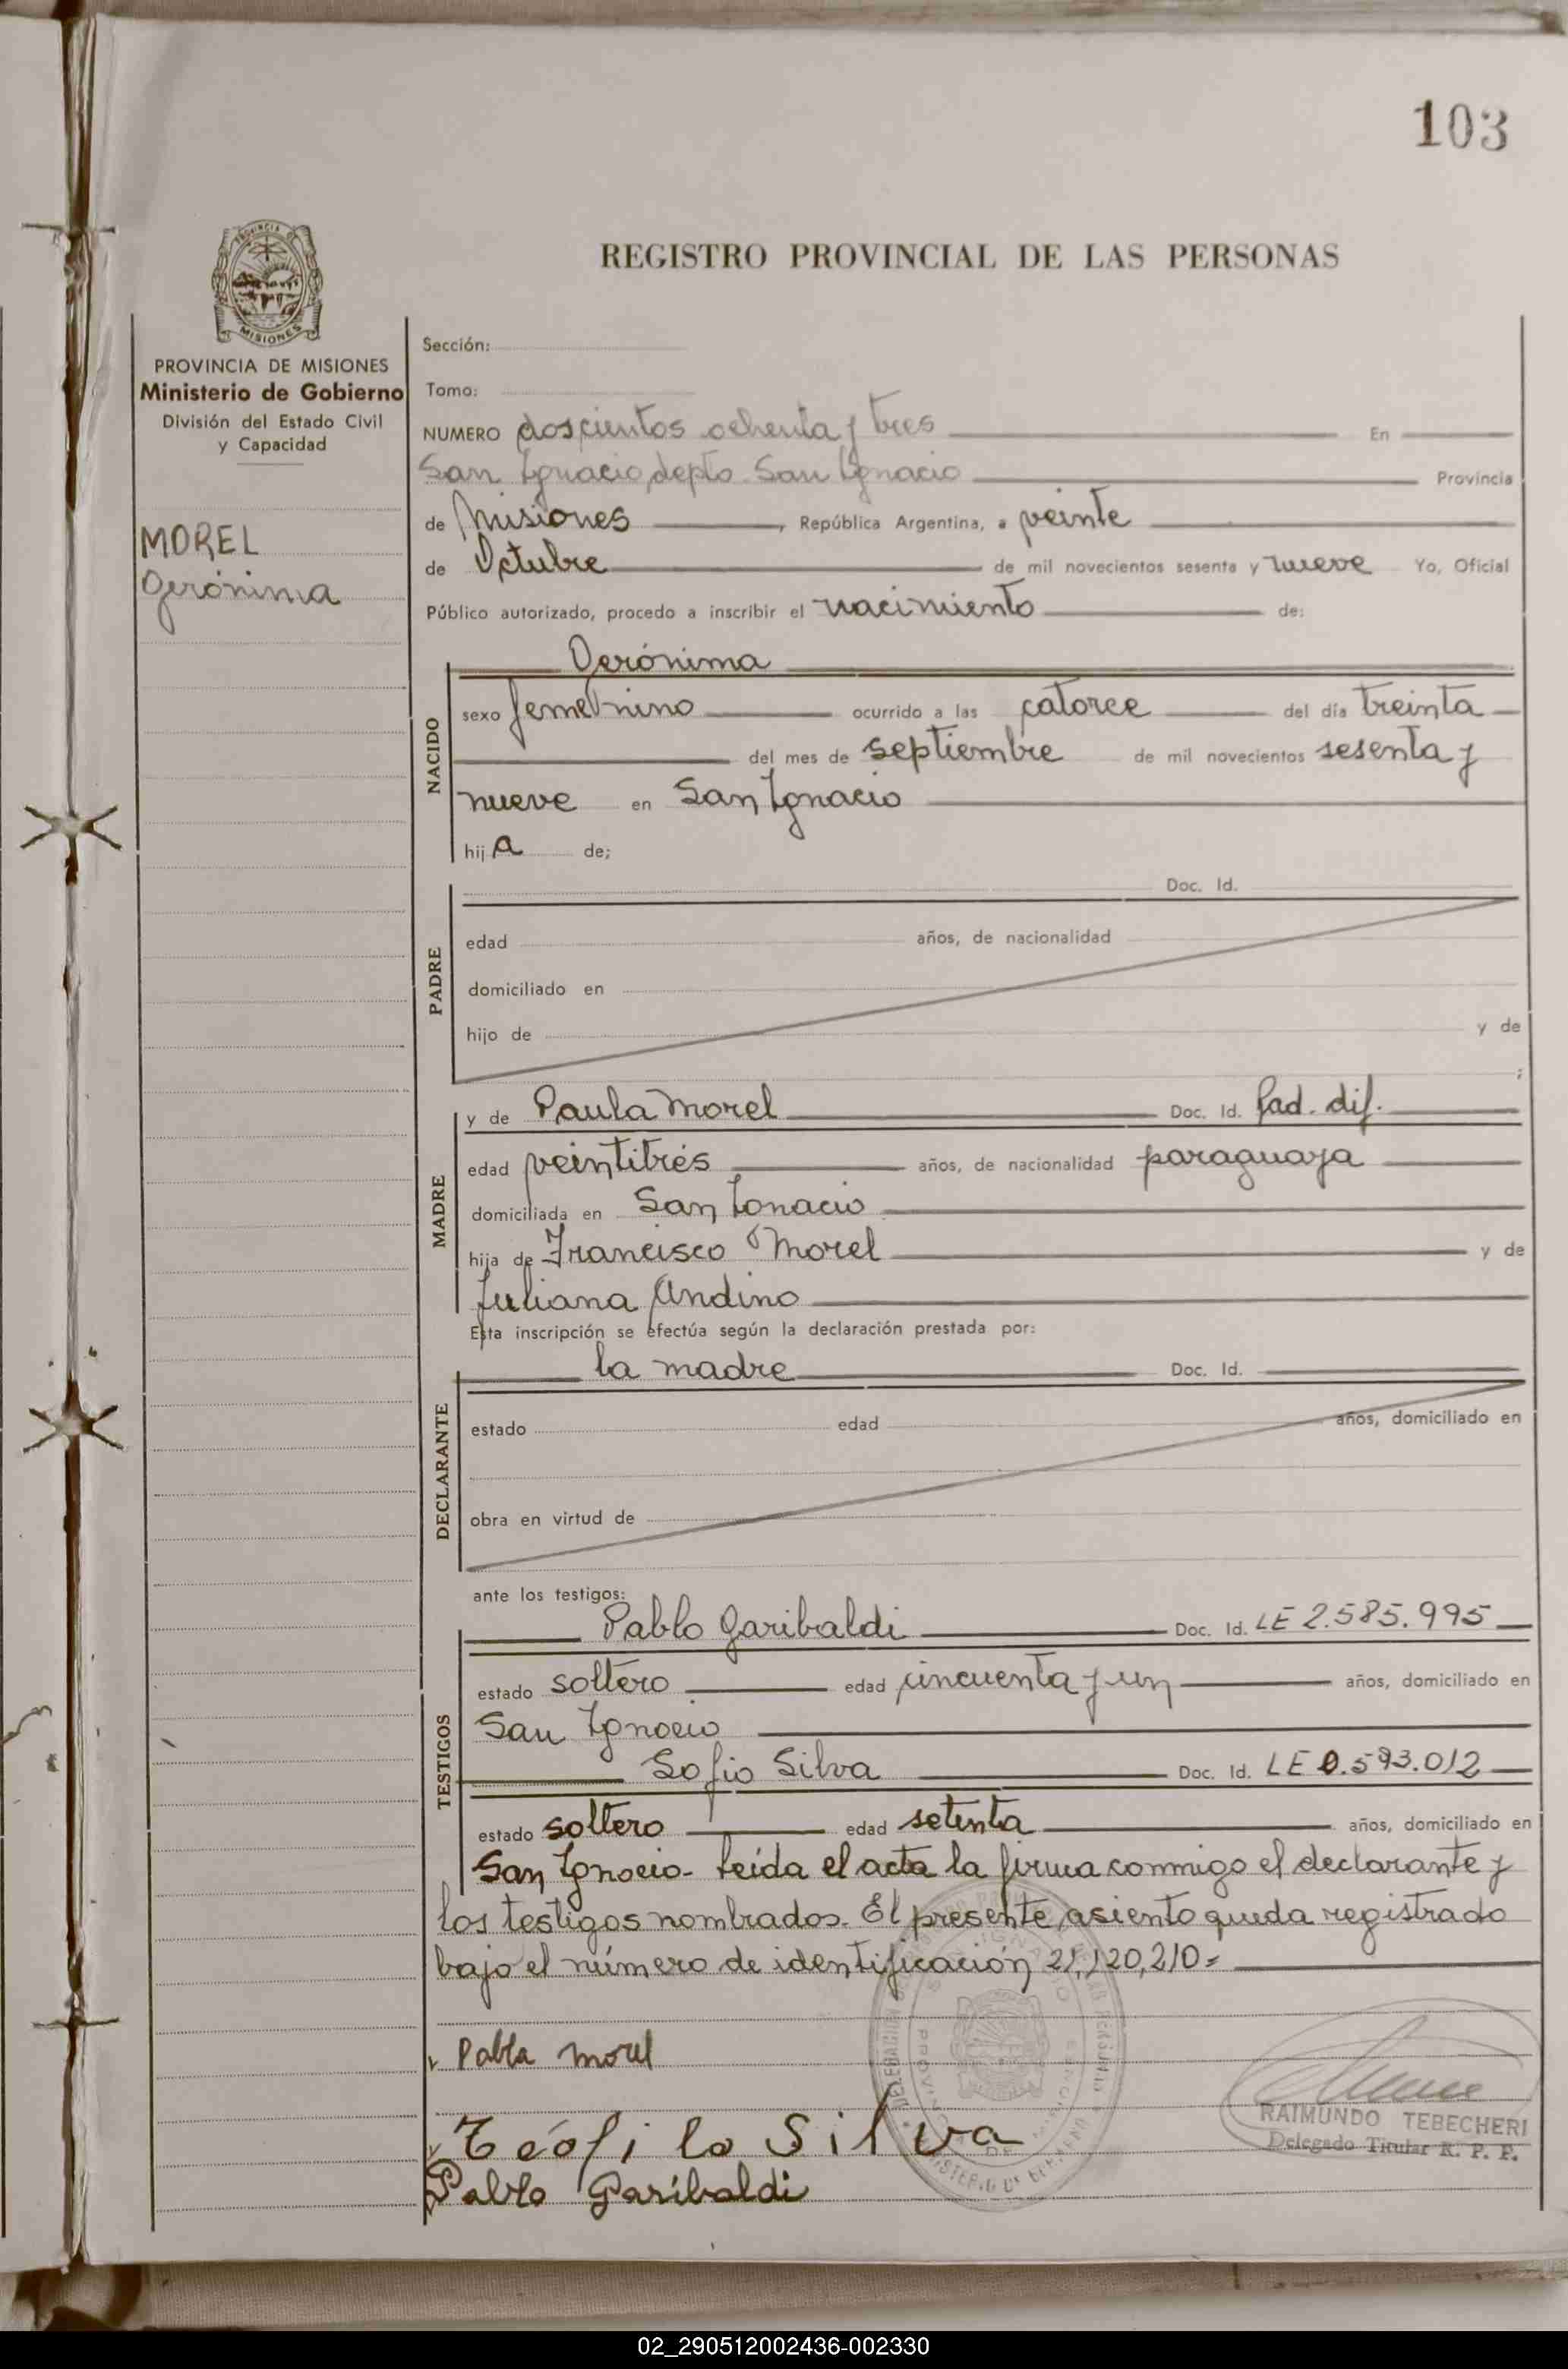 103
REGISTRO PROVINCIAL DE LAS PERSONAS
PROVINCIA DE MISIONES
Ministerio de Gobierno
División del Estado Civil
y Capacidad
MOREL
Gerónima
Sección:
Tomo:
NUMERO doscientos ochenta y tres En
San Ignacio depto. San Ignacio Provincia
de Misiones, República Argentina, a veinte
de Octubre de mil novecientos sesenta y nueve Yo, Oficial
Público autorizado, procedo a inscribir el nacimiento de:
NACIDO
Gerónima
sexo femenino ocurrido a las catorce del día treinta
del mes de septiembre de mil novecientos sesenta y
nueve en San Ignacio
hija de;
PADRE
Doc. Id.
edad años, de nacionalidad
domiciliado en
hijo de y de
;
MADRE
y de Paula Morel Doc. Id. Pad. dif.
edad veintitrés años, de nacionalidad paraguaya
domiciliada en San Ignacio
hija de Francisco Morel y de
Juliana Andino
Esta inscripción se efectúa según la declaración prestada por:
DECLARANTE
la madre Doc. Id.
estado edad años, domiciliado en
obra en virtud de
ante los testigos:
TESTIGOS
Pablo Garibaldi Doc. Id. LE 2.585.995
estado soltero edad cincuenta y un años, domiciliado en
San Ignacio
Sofio Silva Doc. Id. LE 0.593.012
estado soltero edad setenta años, domiciliado en
San Ignacio- Leída el acta la firma conmigo el declarante y
los testigos nombrados. El presente asiento queda registrado
bajo el número de identificación 21,120,210=
Pabla morel
Teófilo Silva
Pablo Garibaldi
RAIMUNDO TEBECHERI
Delegado Titular R. P. P.
02_290512002436-002330